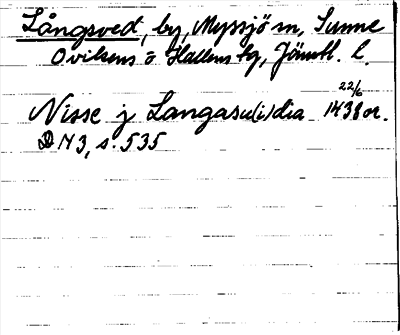 Långsved, by, Myssjö sn, Sunne
Ovikens o. Hallens tg, Jämtl. l.
Nisse j Langasu(i)dia 22/6 1438 or.
DN 3, s. 535